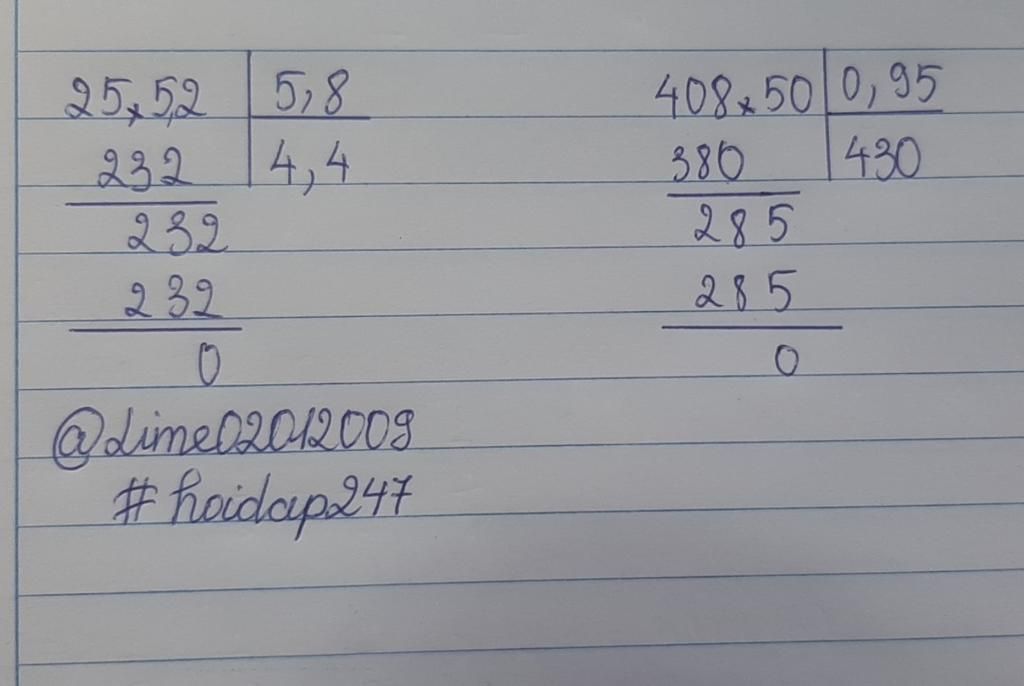 25,5,2 5,8
232 4,4
232
232
0
408,50 0,95
380 430
285
285
0
@Lime02012009
#hoidap247